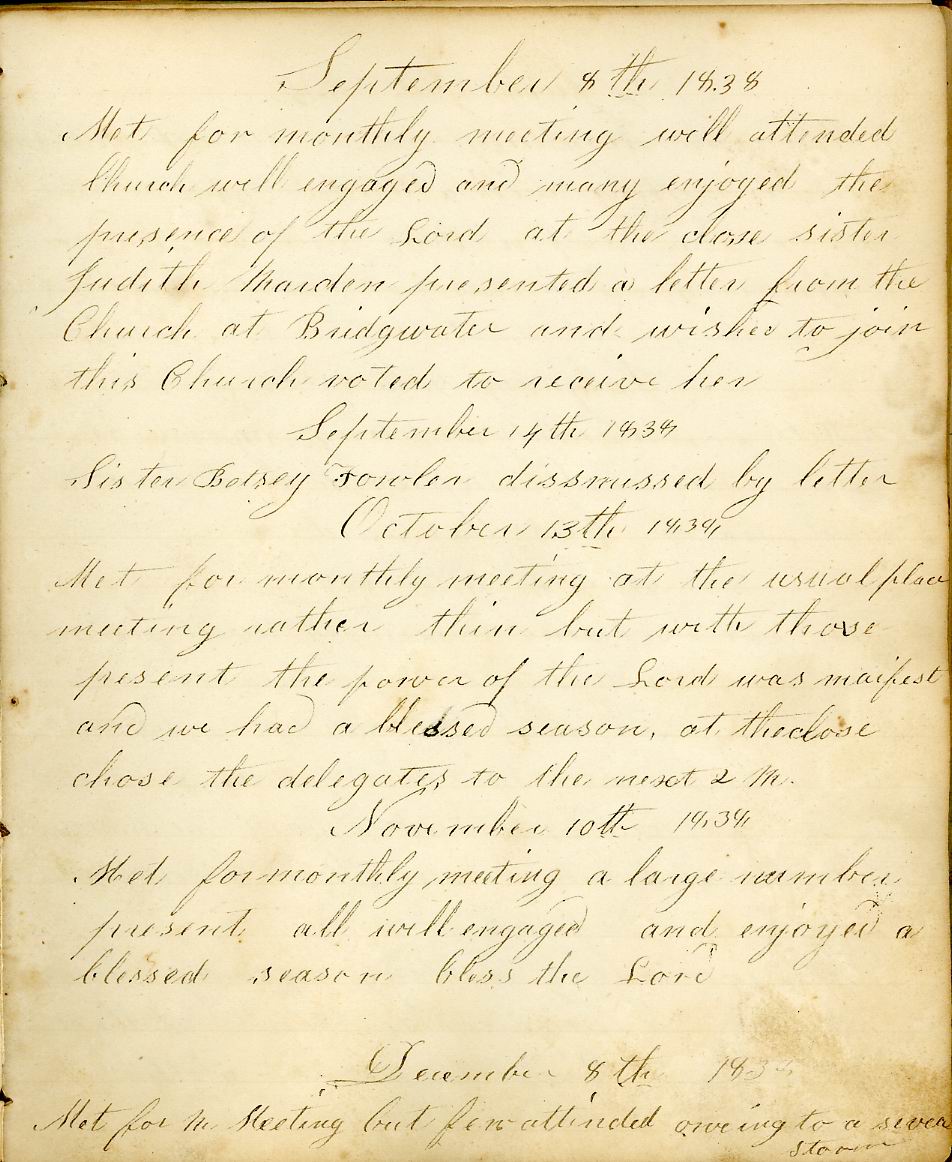 September 8th 1838
Met for monthly meeting will attended
Church will engaged and many enjoyed the
presence of the Lord at the close sister
Judith Marden presented a letter from the
Church at Bridgwater and wished to join
this Church voted to receive her
September 14th 1838
Sister Betsey Fowler dissmissed by letter
October 13th 1838
Met for monthly meeting at the usual place
meeting rather thin but with those
present the power of the Lord was maifest
and we had a blessed season, at the close
chose the delegates to the next 2 M.
November 10th 1838
Met for monthly meeting a large number
present all will engaged and enjoyed a
blessed season bless the Lord
December 8th 1838
Met for M. Meeting but few attended oweing to a sever
storm